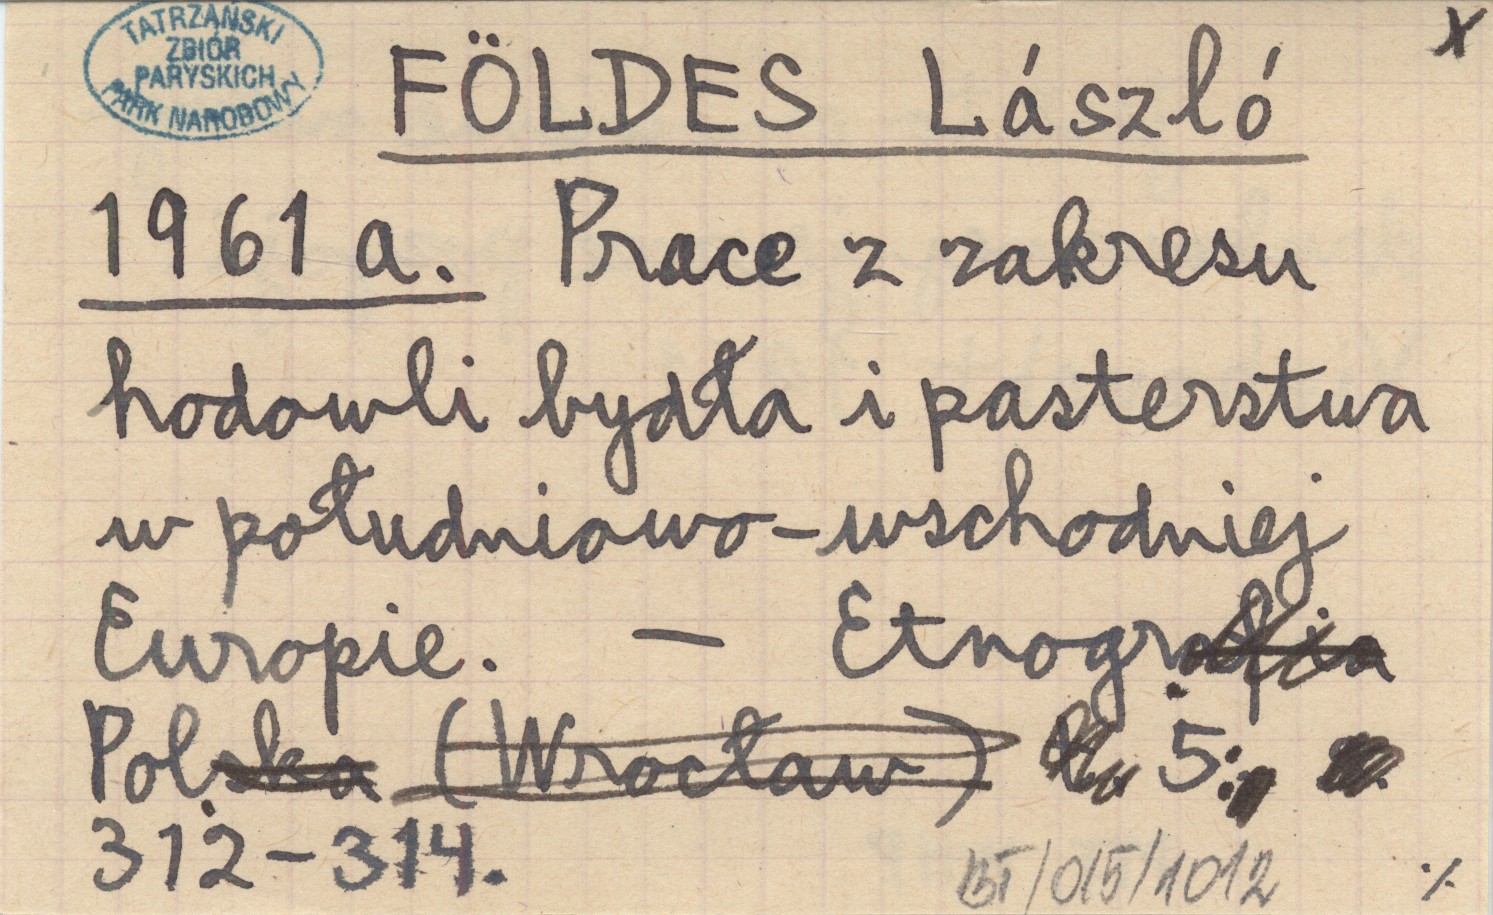 TATRZAŃSKI
ZBIÓR
PARYSKICH
PARK NARODOWY
X
FÖLDES László
1961 a. Prace z zakresu
hodowli bydła i pasterstwa
w południowo-wschodniej
Europie. — Etnografia
Polska (Wrocław) 5:
312-314.
BT/015/1012
./.